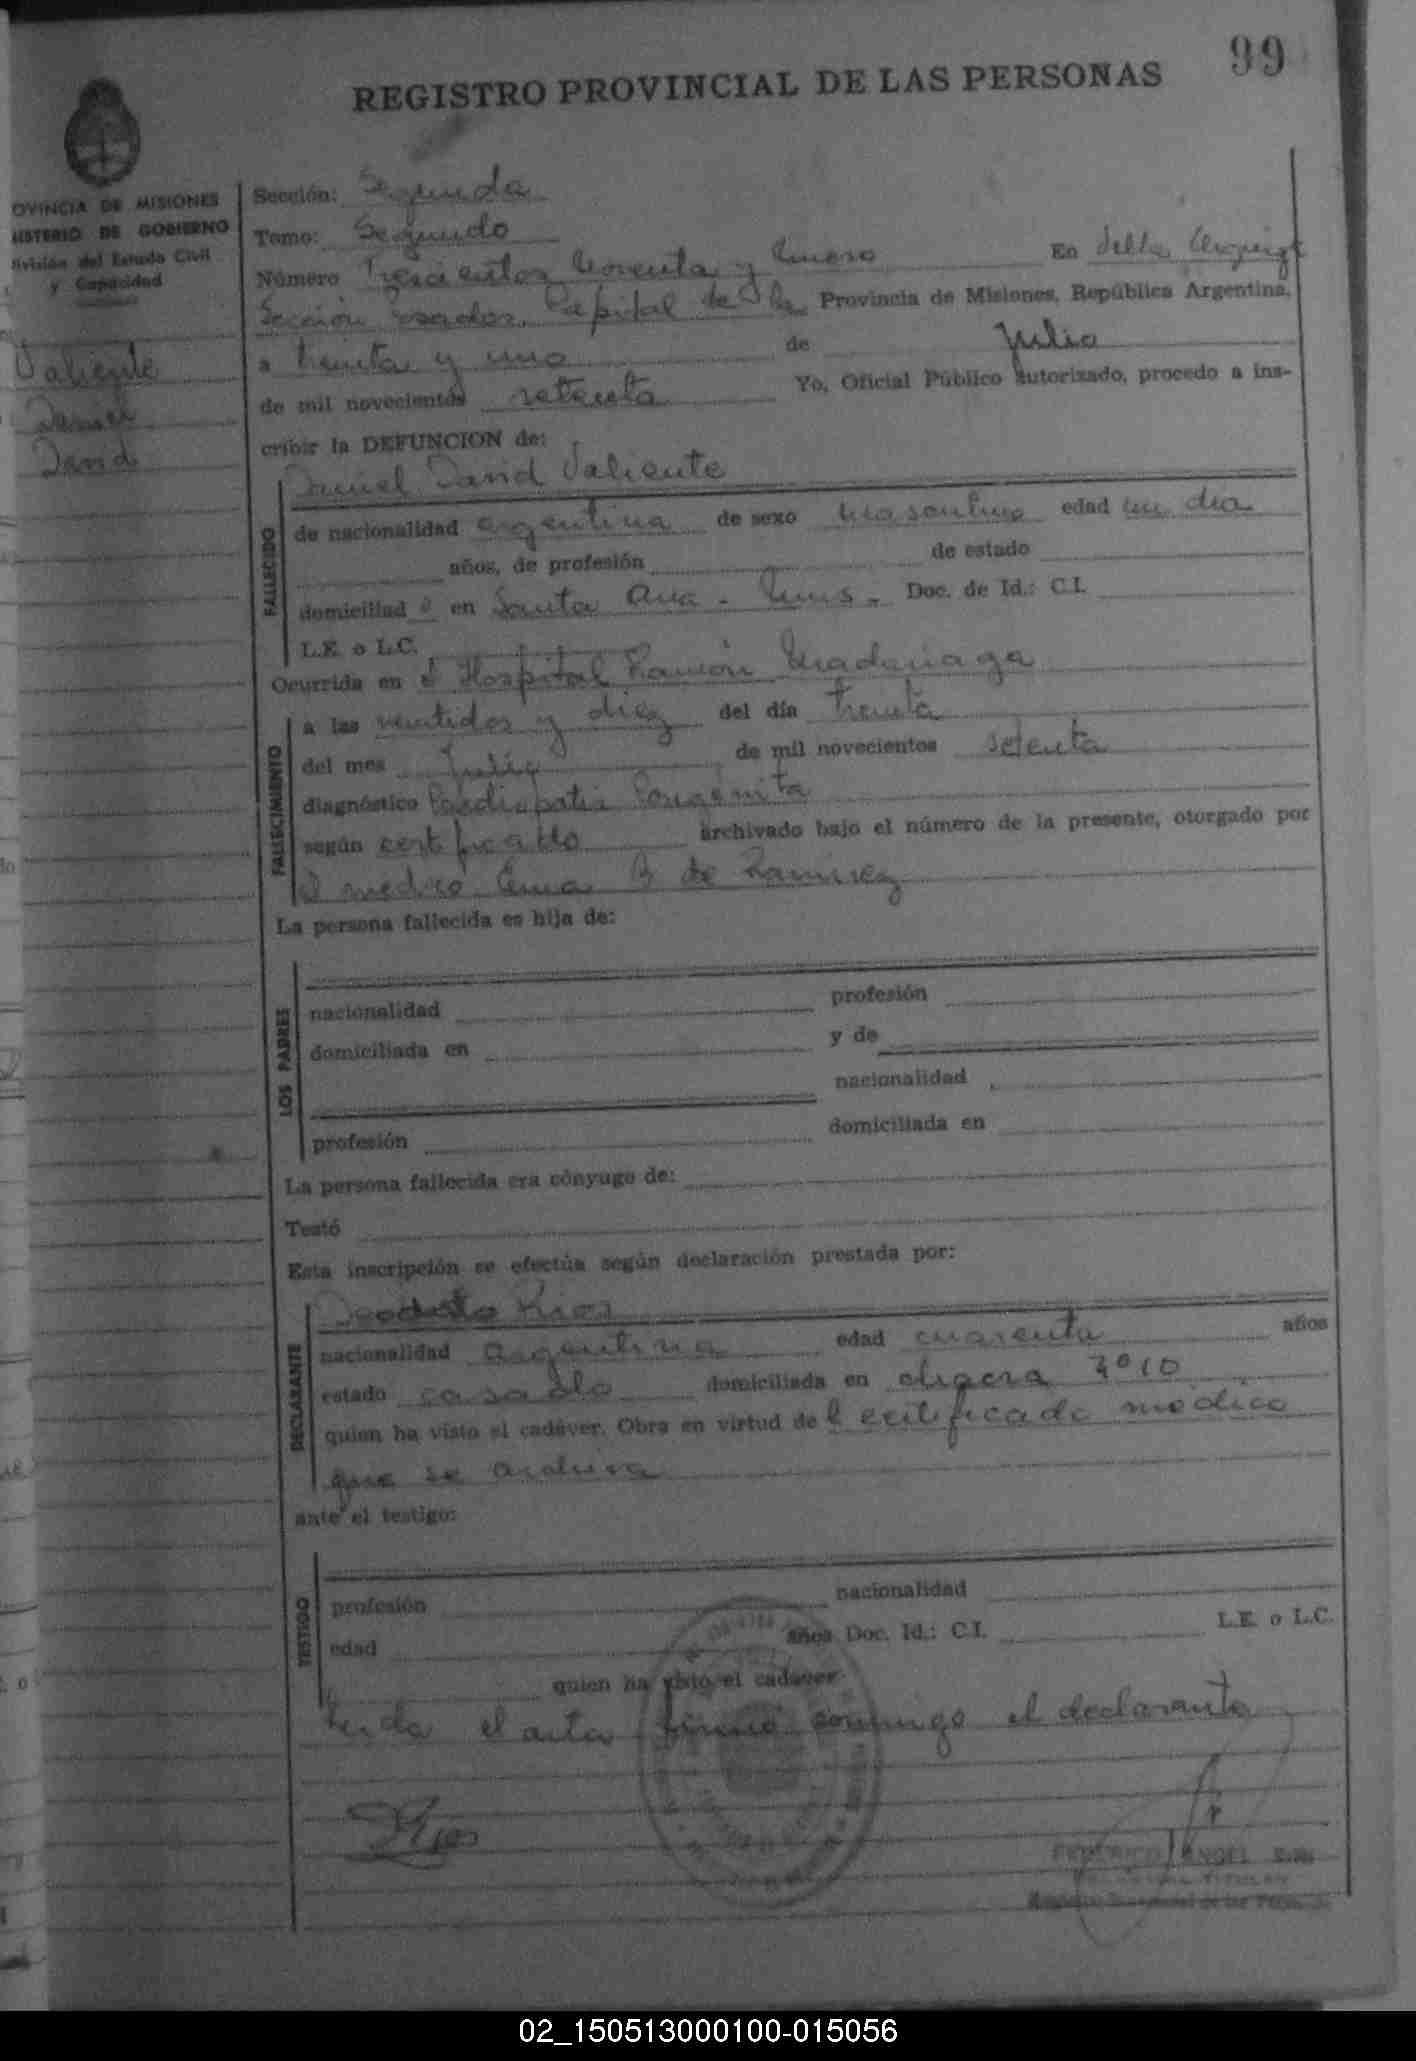 99
REGISTRO PROVINCIAL DE LAS PERSONAS
OVINCIA DE MISIONES
ISTERIO DE GOBIERNO
ivisión del Estado Civil
y Capacidad
Valiente
Daniel
David
Sección: Segunda
Tomo: Segundo
Número Trescientos Noventa y Nueve En Villa Urquiza
Sección Posadas, Capital de la Provincia de Misiones, República Argentina,
a treinta y uno de Julio
de mil novecientos setenta Yo, Oficial Público autorizado, procedo a ins-
cribir la DEFUNCION de:
Daniel David Valiente
FALLECIDO
de nacionalidad argentina de sexo masculino edad un día
años, de profesión de estado
domiciliad o en Santa Ana - Mnes. Doc. de Id.: C.I.
L.E. o L.C.
Ocurrida en el Hospital Ramón Madariaga
FALLECIMIENTO
a las veintidos y diez del día treinta
del mes Julio de mil novecientos setenta
diagnóstico Cardiopatia Congénita
según certificado archivado bajo el número de la presente, otorgado por
el medico Ema B de Ramirez
La persona fallecida es hija de:
LOS PADRES
nacionalidad profesión
domiciliada en y de
nacionalidad
profesión domiciliada en
La persona fallecida era cónyuge de:
Testó
Esta inscripción se efectúa según declaración prestada por:
DECLARANTE
Deodato Rios
nacionalidad argentina edad cuarenta años
estado casado domiciliada en chacra
quien ha visto el cadáver. Obra en virtud de l certificado médico
que se archiva
ante el testigo:
TESTIGO
profesión nacionalidad
edad años Doc. Id.: C.I. L.E. o L.C.
quien ha visto el cadáver
Leida el acta firmó conmigo el declarante
Rios
FEDERICO ANGEL
02_150513000100-015056